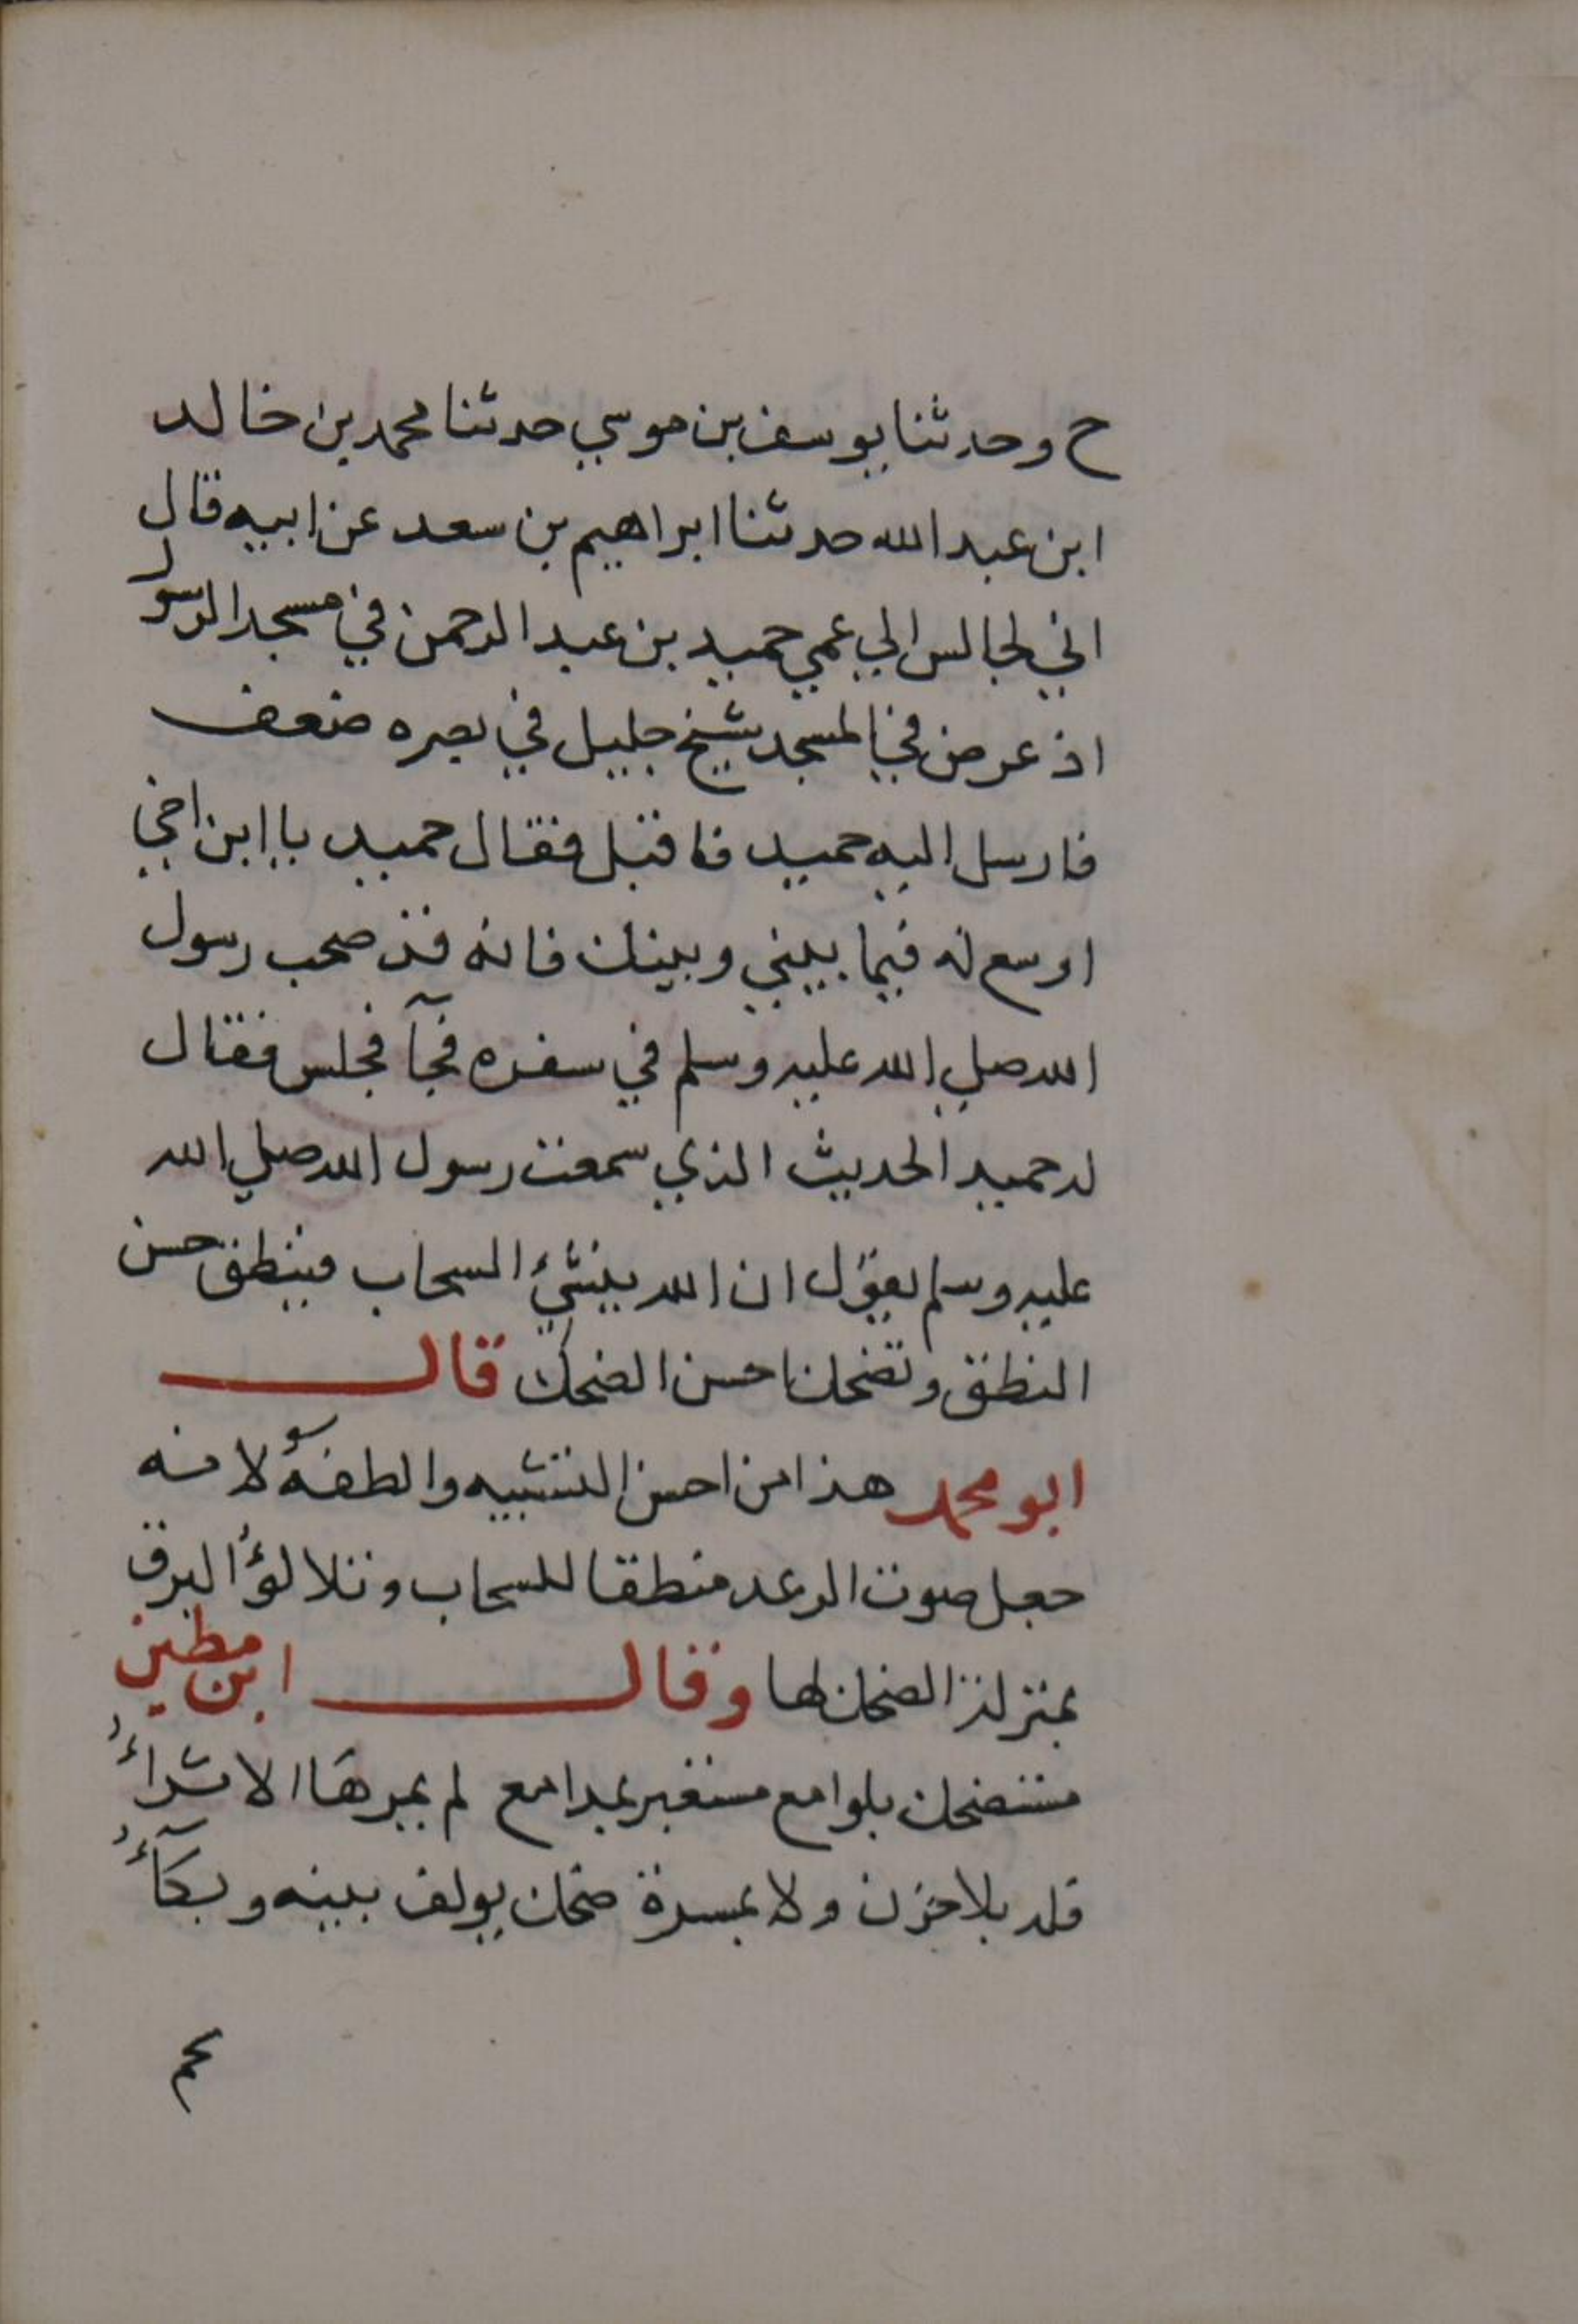 ح وحدثنا يوسف بن موسي حدثنا محمد بن خالد
ابن عبد الله حدثنا ابراهيم بن سعد عن ابيه قال
اني لجالس الي عمي حميد بن عبد الرحمن في مسجد الرسول
اذ عرض في المسجد شيخ جليل في بصره ضعف
فارسل اليه حميد فاقبل فقال حميد يا ابن اخي
اوسع له فيما بيني وبينك فانه قد صحب رسول
الله صلي الله عليه وسلم في سفره فجآ فجلس فقال
له حميد الحديث الذي سمعت رسول الله صلي الله
عليه وسلم يقول ان الله ينشئ السحاب فينطق حسن
النطق وتضحك احسن الضحك قال
ابو محمد هذا من احسن التشبيه والطفه لانه
جعل صوت الرعد منطقا للسحاب وتلالؤ البرق
بمنزلة الضحك لها وقال ابن مطير
مستضحك بلوامع مستعبر بمدامع لم يمرها الاقذاءُ
فله بلا حزن ولا بمسرة ضحك يولف بينه وبكآءُ